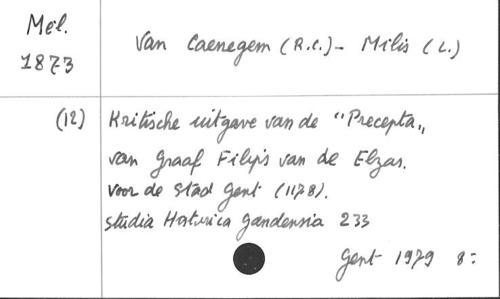 Mél.
1873
Van Caenegem (R.C.) - Milis (L.)
(12) Kritische uitgave van de "Precepta„
van Graaf Filips van de Elzas.
voor de Stad Gent (1178).
Studia Historica Gandensia 233
Gent 1979 8: